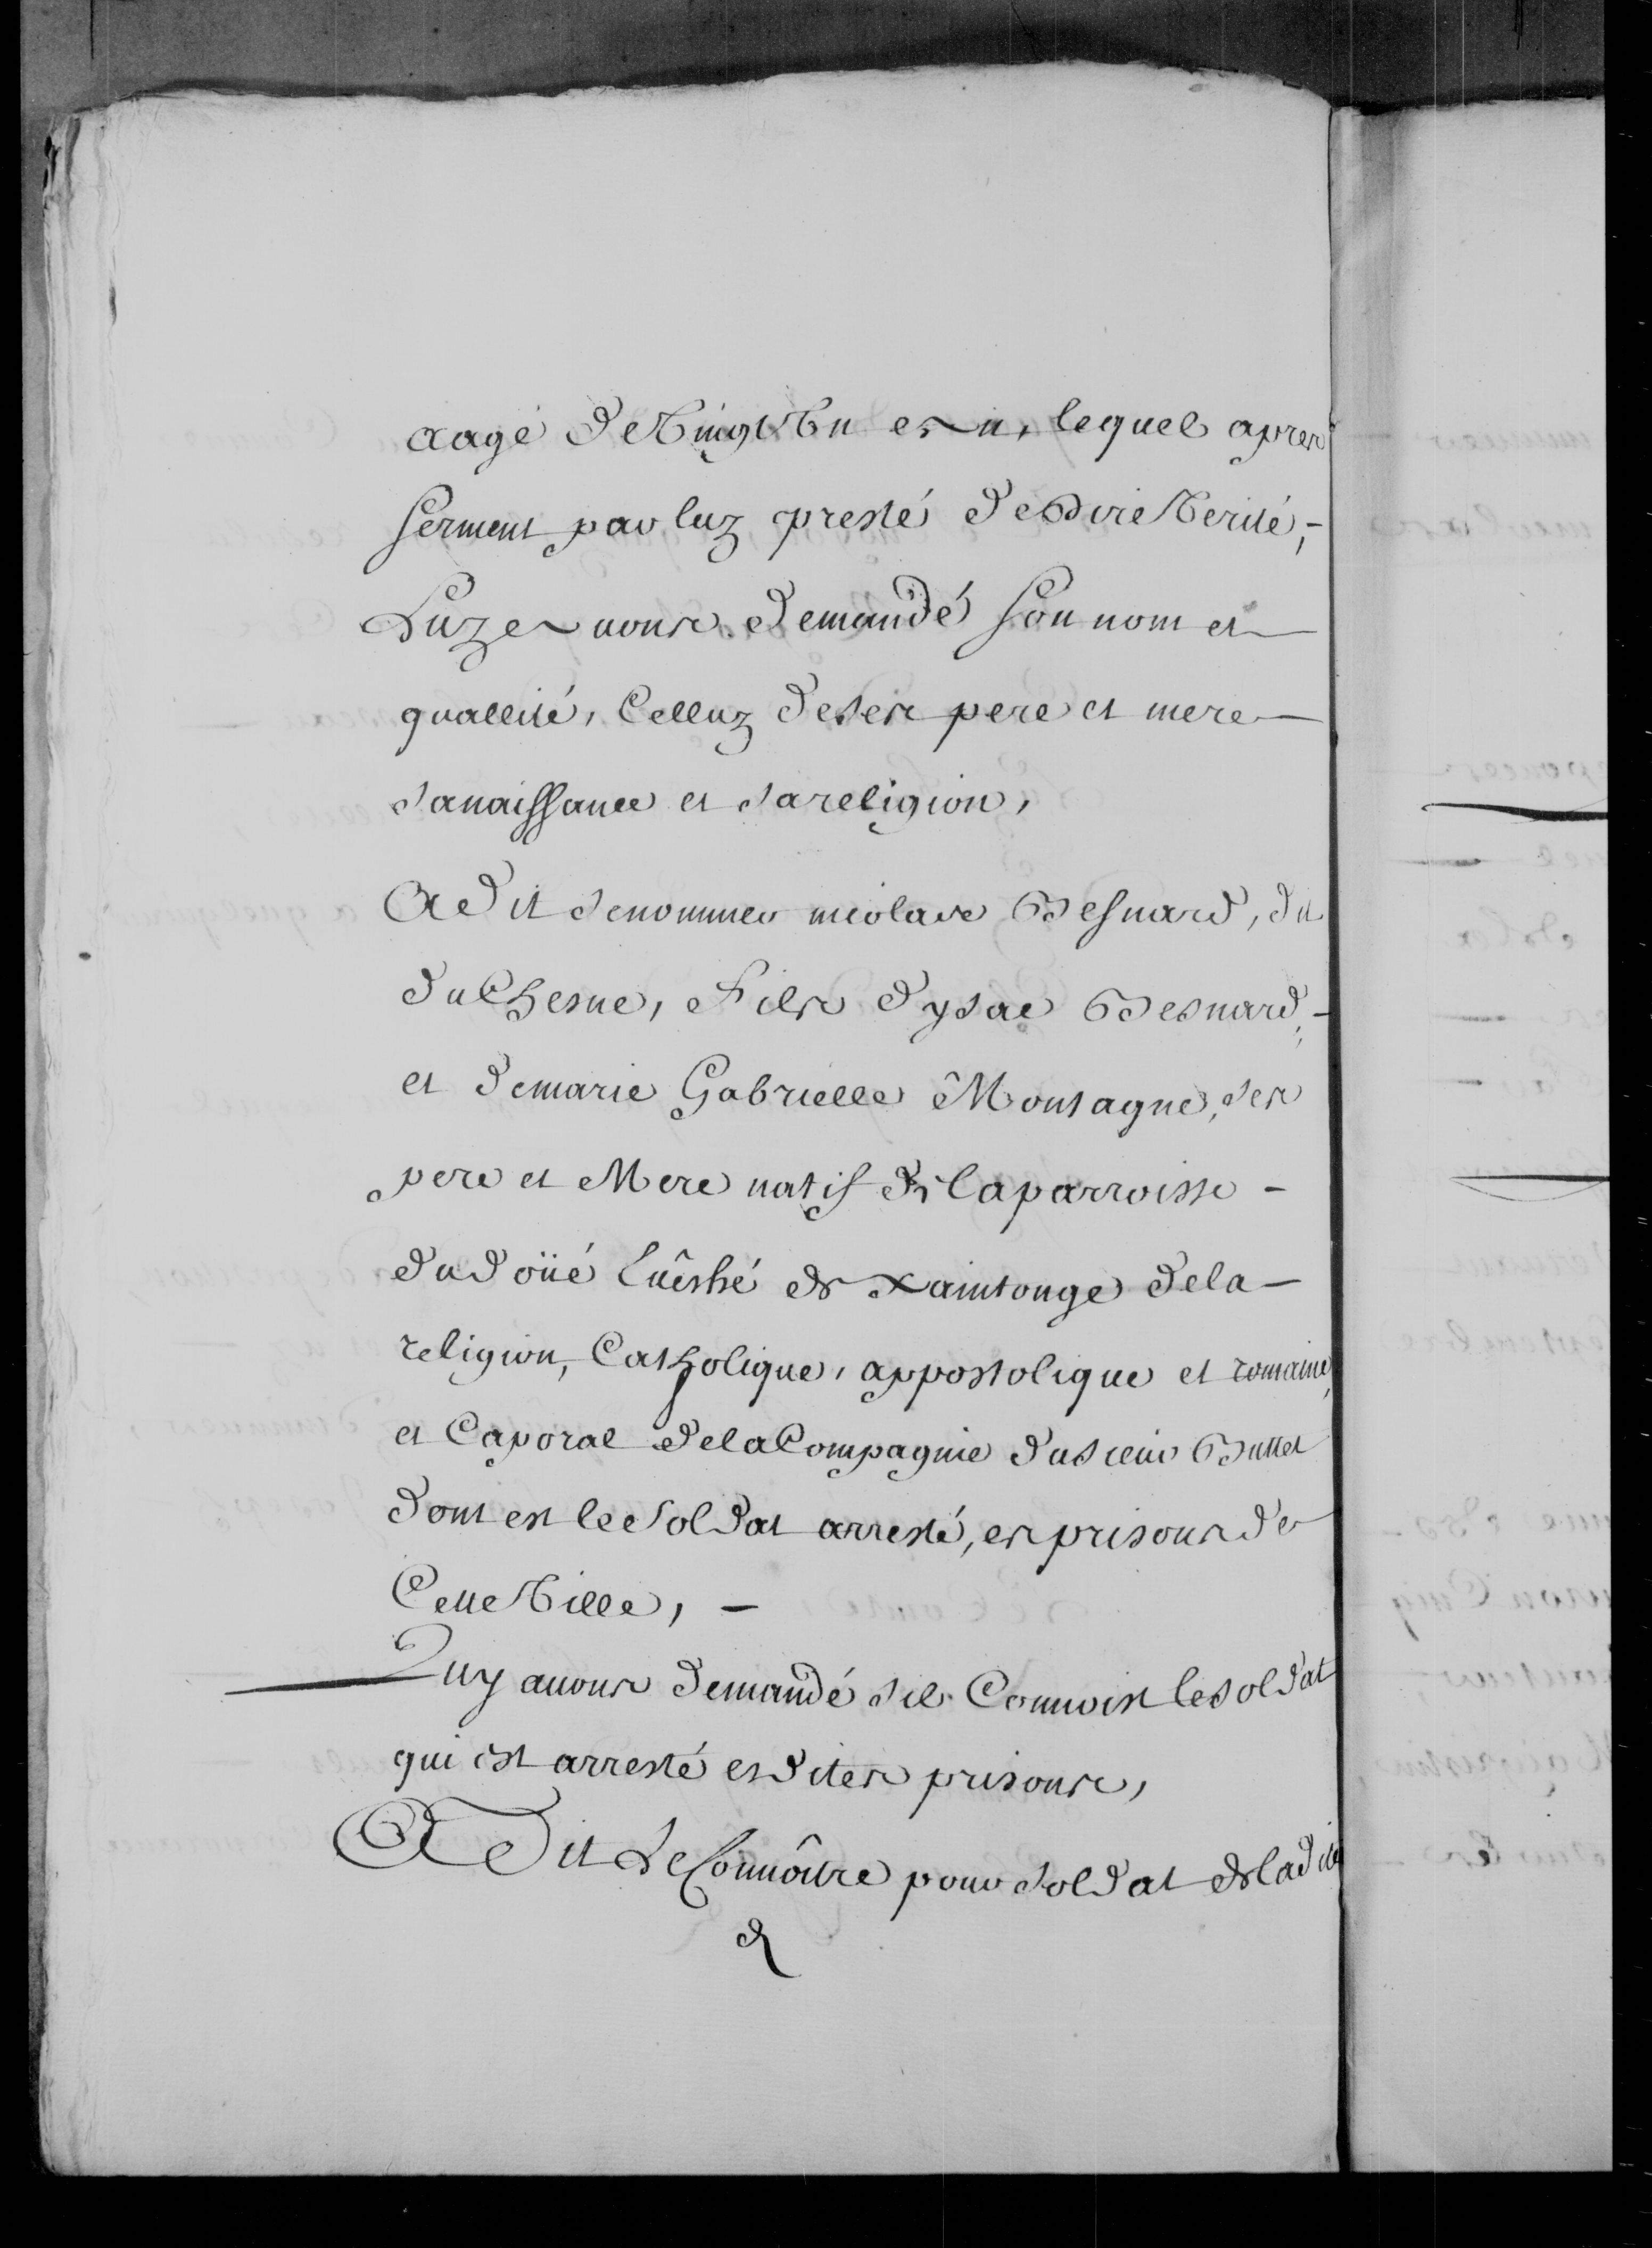 aagé de Vingt Un an, lequel apres
serment par luy presté de dire Verité,-
Luy avons demandé son nom et
quallité, Celluy de ses pere et mere
sa naissance et sa religion,
A dit se nommer nicolas Besnard, dit
du Chesne, fils d'ysac Besnard,-
et de marie Gabrielle Montagne, ses
pere et Mere natif de la parroisse -
du doüé Evêché de Xaintonge de la -
religion, Catholique, appostolique et romaine,
et Caporal de la Compagnie du sieur Buttet
dont est le soldat arresté, es prisons de
Cette Ville, -
Luy avons demandé sil Connoist le soldat
qui est arresté esdites prisons,
A Dit Le Connoître pour soldat de ladite